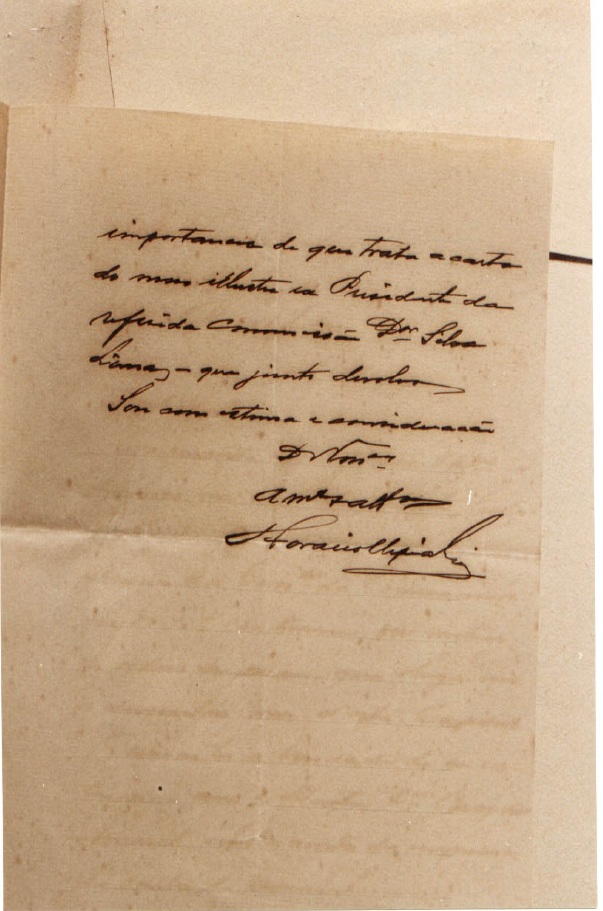 importancia de que trata a carta
do nosso illustre ex Presidente da
referida Commissão Dor. Silva
Lima, – que junto devolvo
Sou com estima e consideração
De V. Exa.
Amo
Horacio